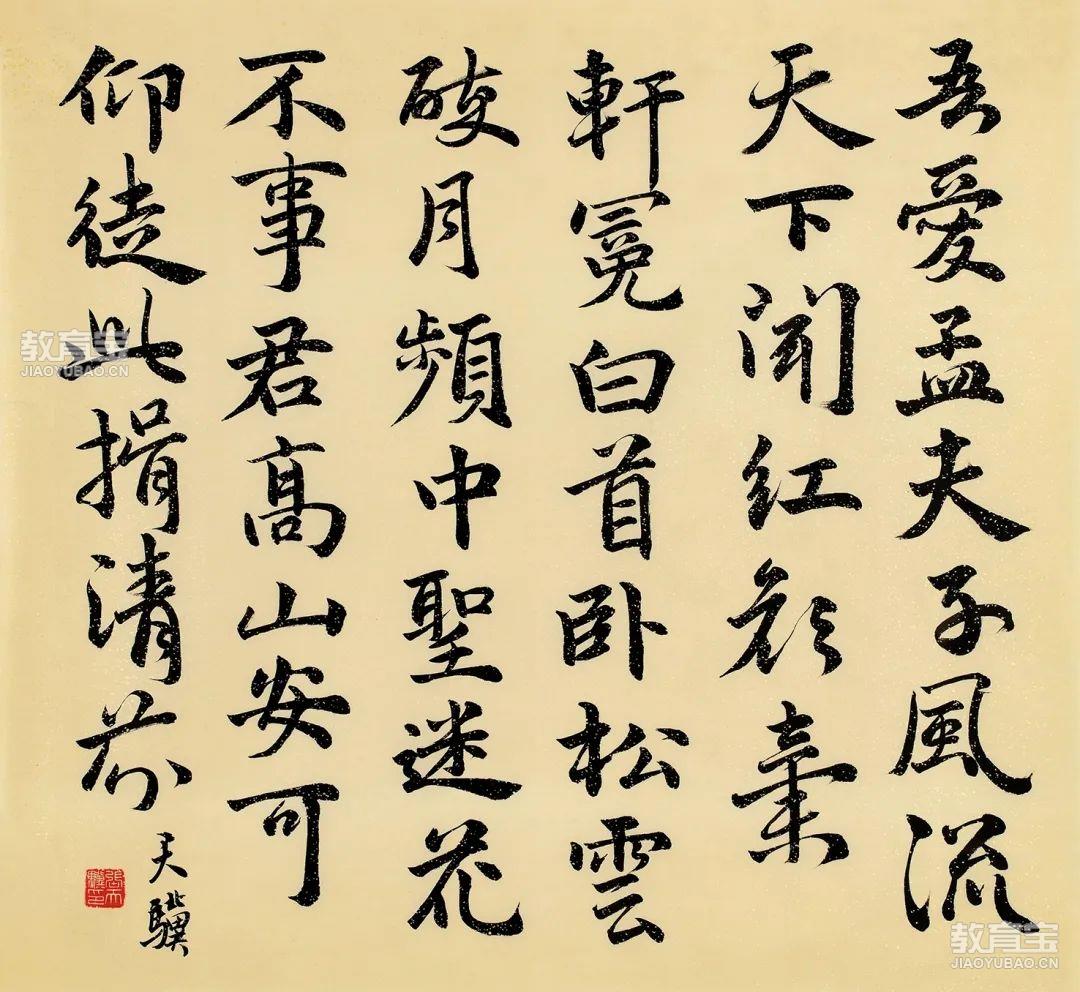 吾愛孟夫子風流
天下聞红顔棄
軒冕白首卧松雲
醉月頻中聖迷花
不事君高山安可
仰徒此揖清芬
天驥
張天驥印
教育宝
JIAOYUBAO.CN
教育宝
JIAOYUBAO.CN